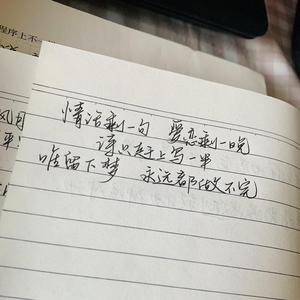 程序上不
风月
平
情话剩一句 爱恋剩一晚
诗只赶上写一半
唯留下梦 永远都做不完